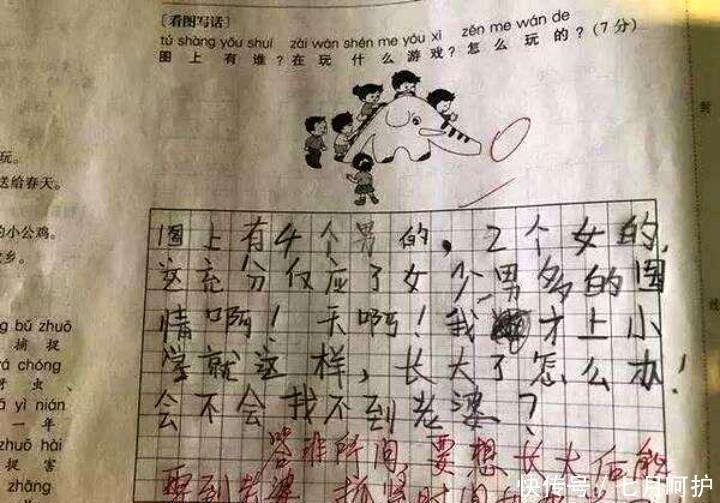 ［看图写话］
tú shàng yǒu shuí zài wán shén me yóu xì zěn me wán de
图上有谁？在玩什么游戏？怎么玩的？(7分)
玩。
送给春天。
的小公鸡。
乡。
图上有4个男的，2个女的，
这充分仅应了女少男多的国
情啊！天啊！我才上小
学就这样，长大了怎么办！
会不会找不到老婆？
答非所问，要想长大后能
要到老婆
ng bǔ zhuō
捕捉
á chóng
虫、
á yì nián
一年
zhuō hài
捉害
zhāng
快传号/七月呵护